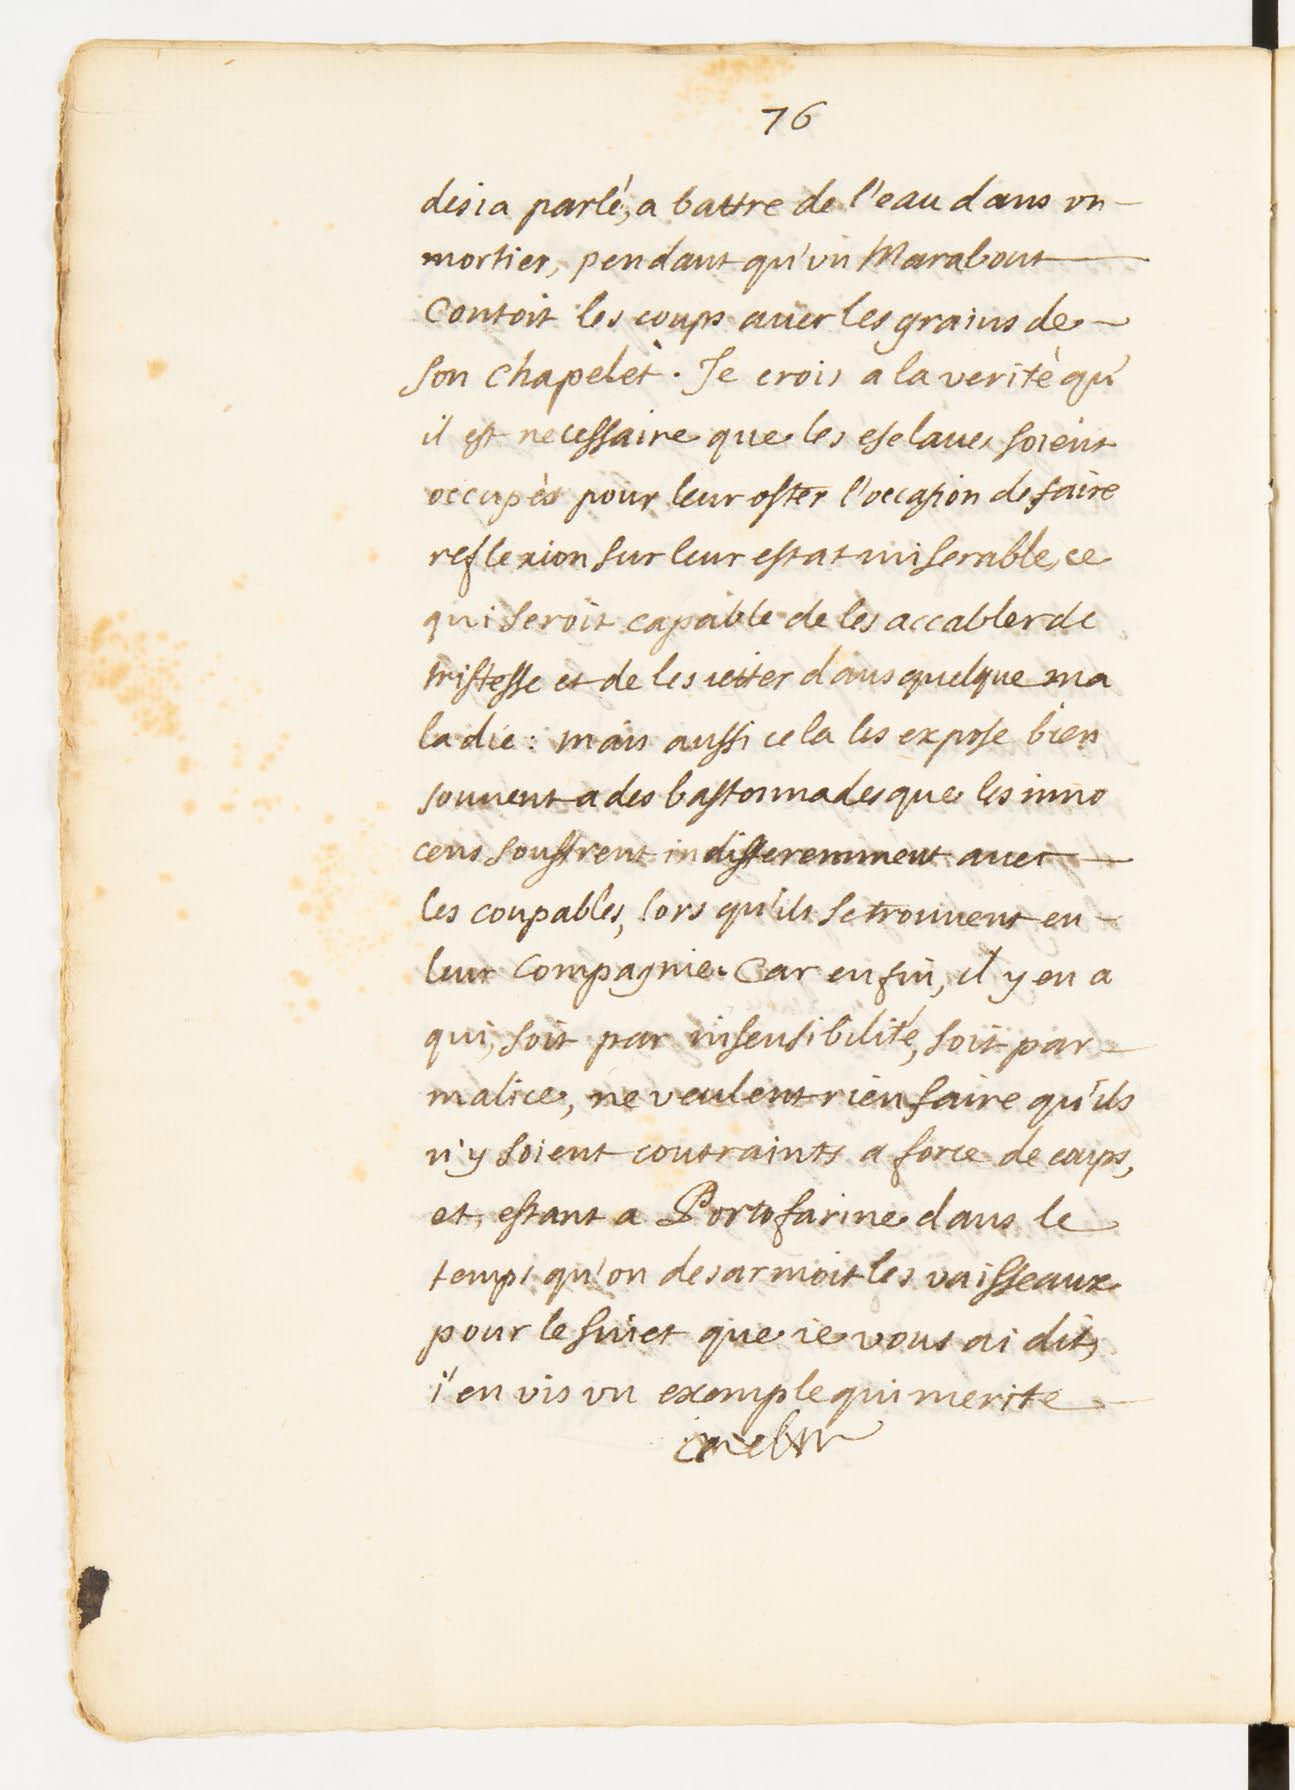 76
desia parlé, a battre de l'eau dans vn
mortier, pendant qu'vn Marabout
Contoit les coups auec les grains de
son chapelet. Je crois a la verité qu'
il est necessaire que les esclaues soient
occupés pour leur oster l'occasion de faire
reflexion sur leur estat miserable, ce
qui seroit capable de les accabler de
tristesse et de les ietter dans quelque ma
ladie : mais aussi cela les expose bien
souuent a des bastonnades que les inno
cens souffrent indifferemment auec
les coupables, lors qu'ils se trouuent en
leur Compagnie. Car enfin, il y en a
qui, soit par insensibilité, soit par
malice, ne veulent rien faire qu'ils
n'y soient contraints a force de coups,
et, estant a Portofarine dans le
temps qu'on desarmoit les vaisseaux
pour le suiet que ie vous ai dit,
i'en vis vn exemple qui merite